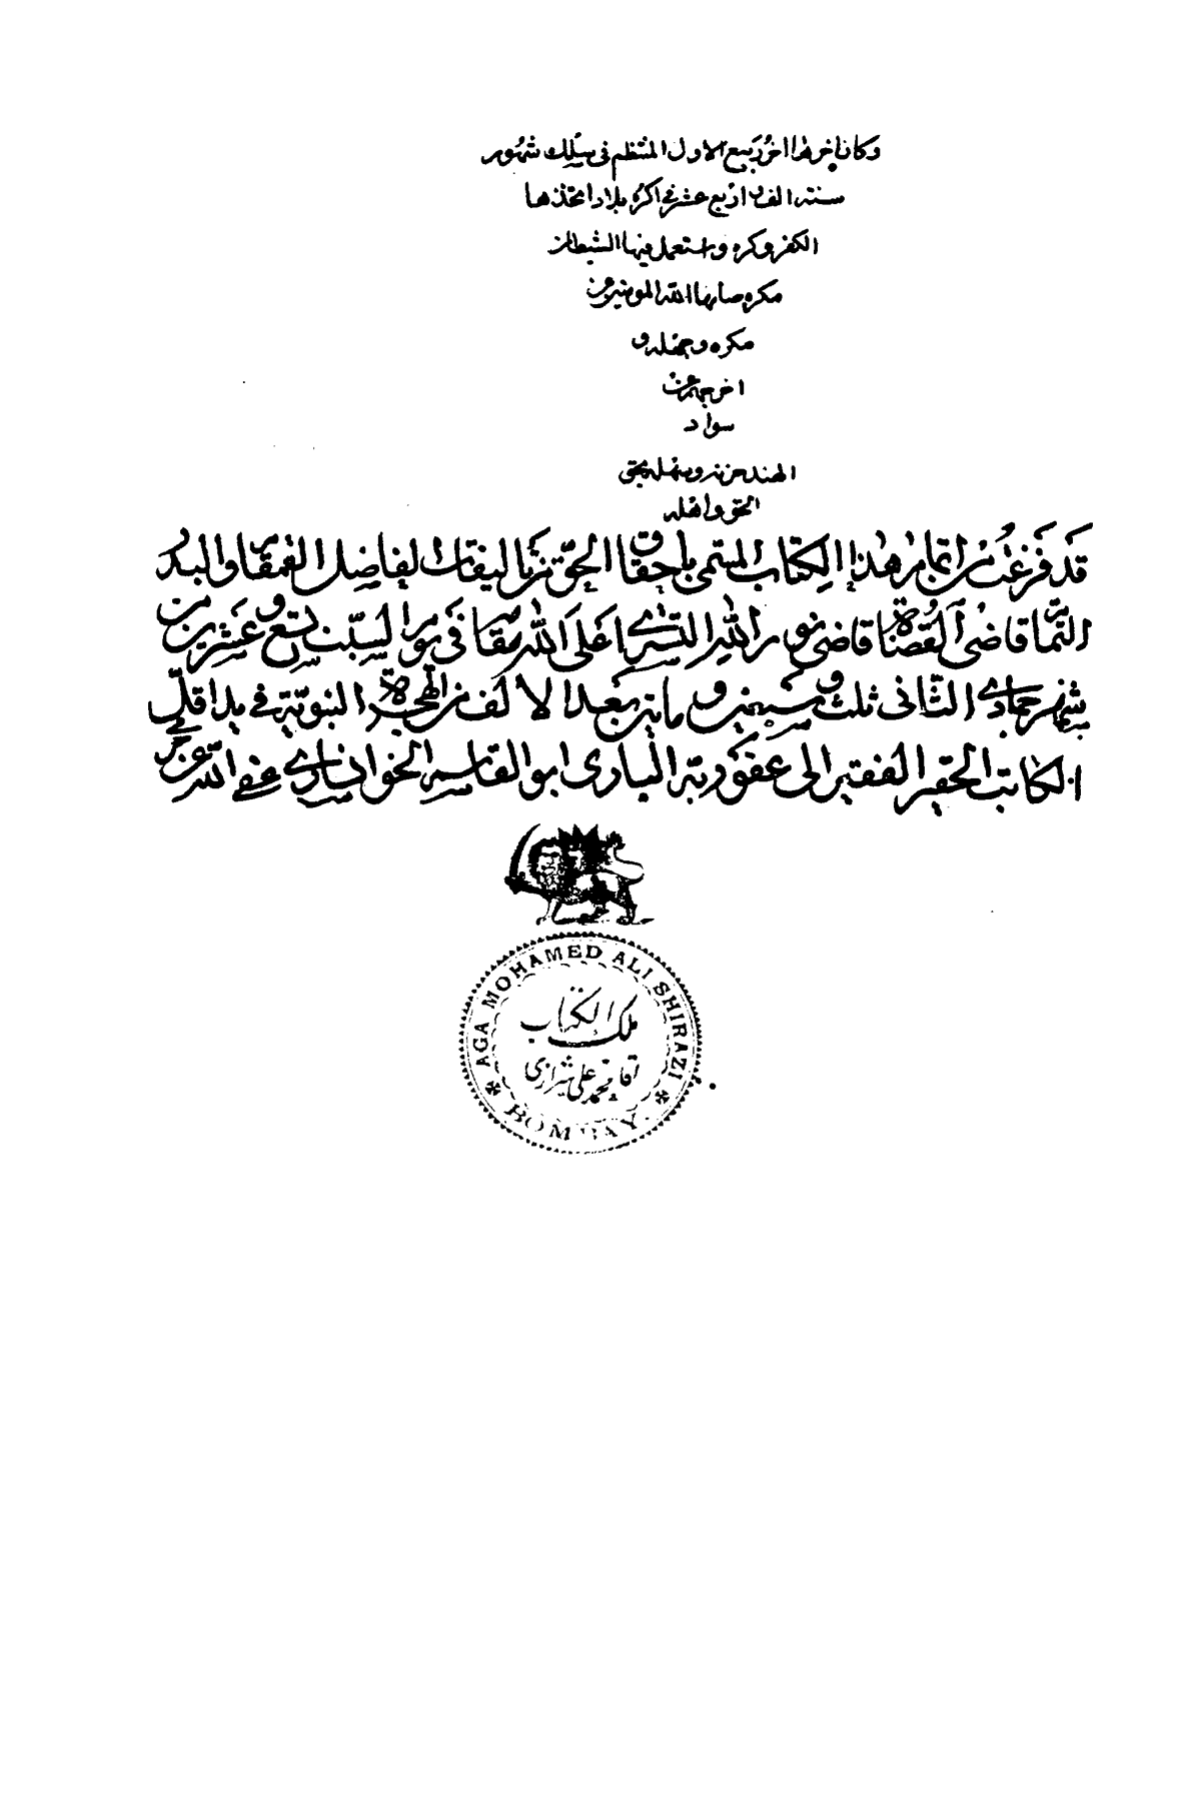 وكان اخرها اخر ربيع الاول المنتظم في سلك شهور
سنة الف اربع عشر في اكره بلاد اتخذها
الكفر وكره واستعمل فيها الشيطان
مكره صانها الله المومنين عن
مكره وجهله و
اخرجهم عن
سواد
الهند حزنه وسهله بحق
الحق واهله
قد فرغت من اتمام هذا الكتاب المسمى باحقاق الحق من تاليفات الفاضل القمقام والبدر
التمام قاضي القضاة قاضي نور الله التستري اعلى الله مقامه في يوم السبت تسع وعشرين من
شهر جمادي الثاني ثلث و سبعين و ماية بعد الالف من الهجرة النبوية في يد اقل
الكاتب الحقير الفقير الى عفو ربه الباري ابو القاسم الخوانساري عفى الله عن
AGA MOHAMED ALI SHIRAZI
ملك الكتاب
اقا محمد علي شيرازي
BOMBAY.